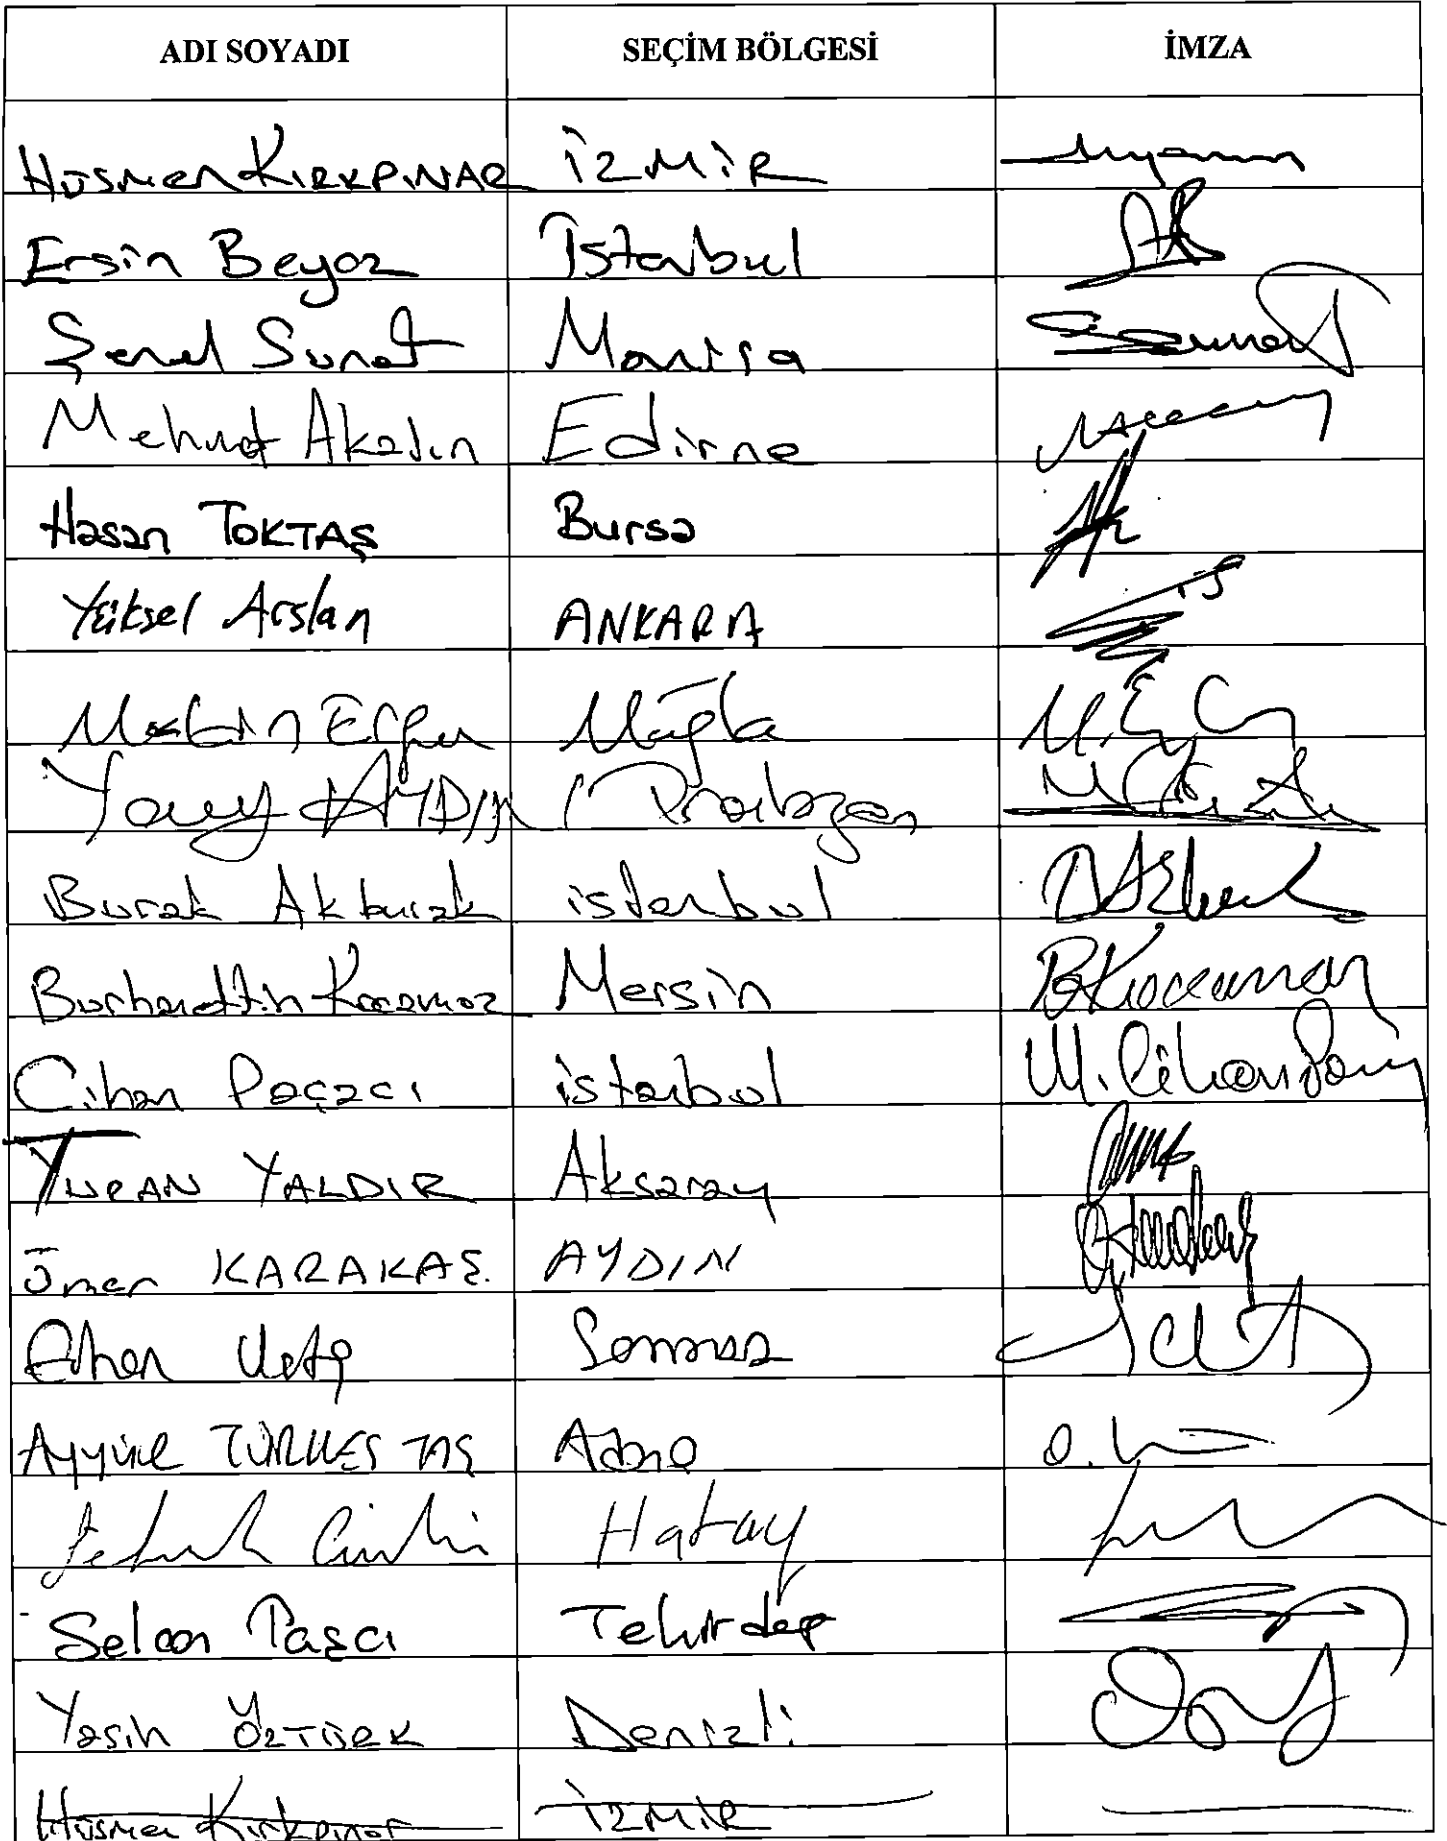 ADI SOYADI SEÇİM BÖLGESİ İMZA
Hüsmen KIRKPINAR İZMİR
Ersin Beyaz İstanbul
Şenol Sunat Manisa
Mehmet Akalın Edirne
Hasan TOKTAŞ Bursa
Yüksel Arslan ANKARA
Metin Ergun Muğla
Yavuz AYDIN Trabzon
Burak Akburak istanbul
Burhanettin Kocamaz Mersin
Cihan Paçacı istanbul
TURAN YALDIR Aksaray
Ömer KARAKAŞ. AYDIN
Erhan Usta Samsun
Ayyüce TÜRKEŞ TAŞ Adana
Hatay
Selcan Taşcı Tekirdağ
Yasin ÖZTÜRK Denizli
Hüsmen Kırkpınar İZMİR